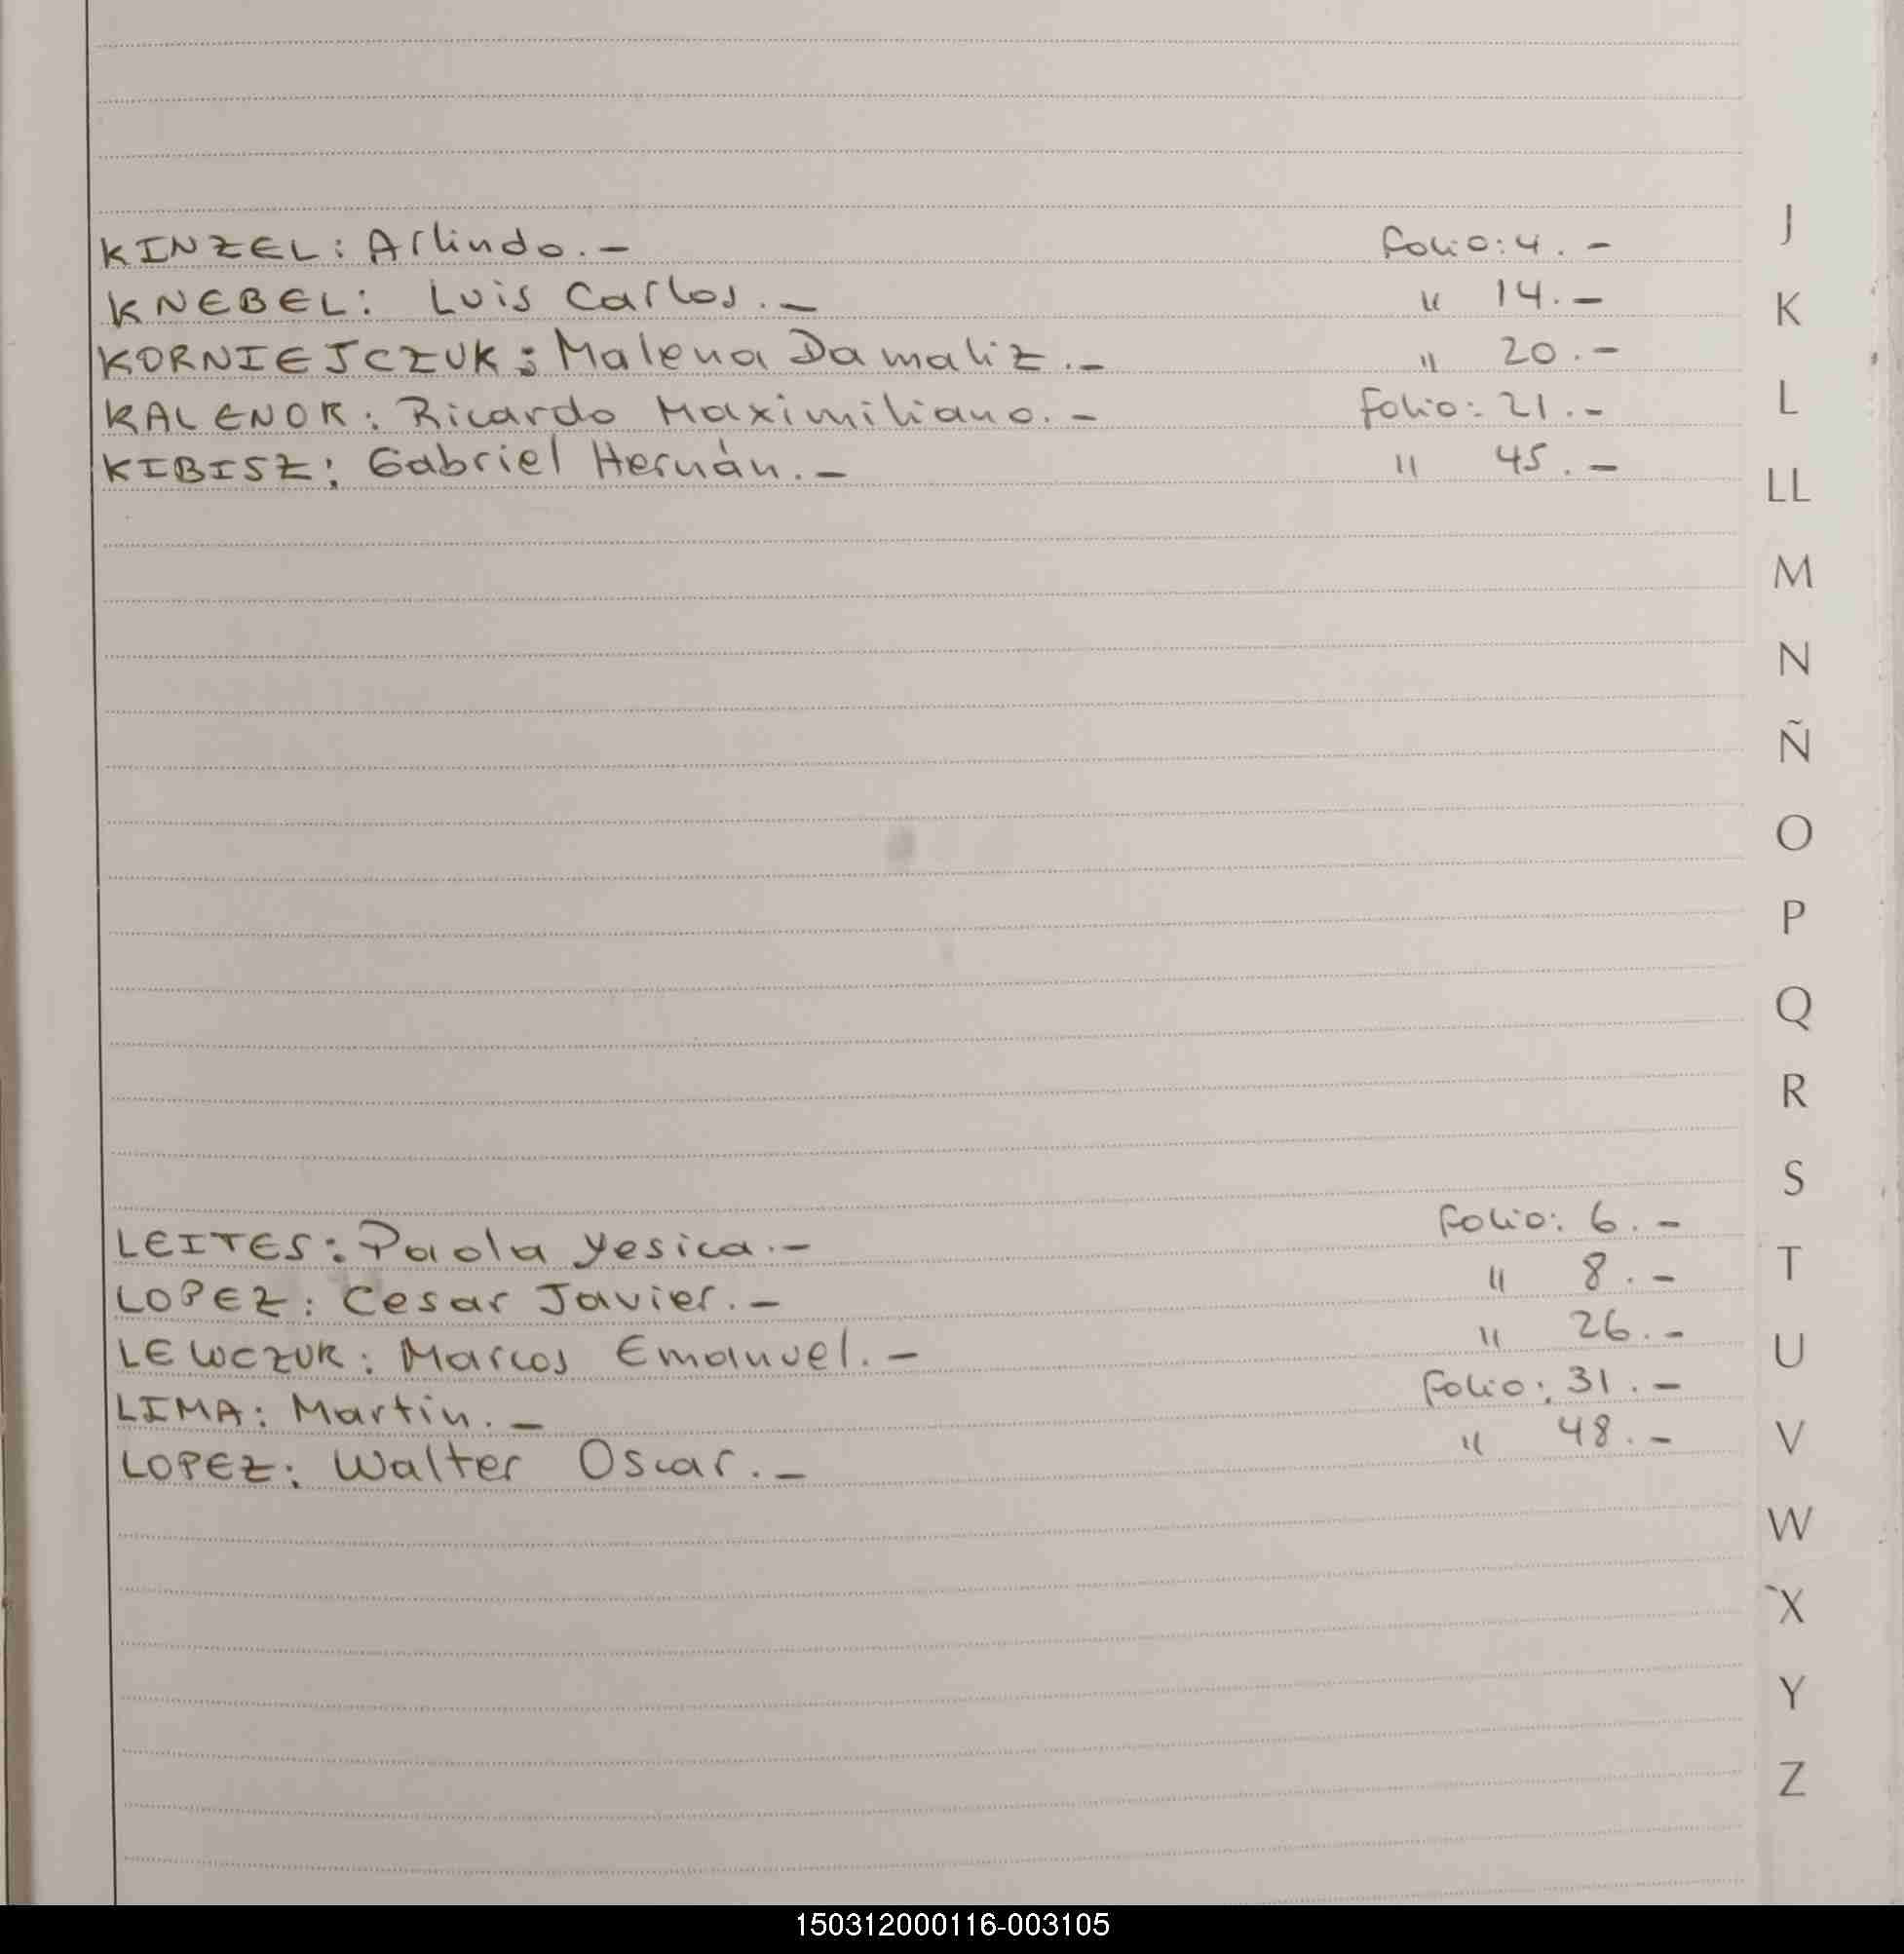 KINZEL: Arlindo.- Folio: 4.-
KNEBEL: Luis Carlos.- " 14.-
KORNIEJCZUK: Malena Damaliz.- " 20.-
KALENOK: Ricardo Maximiliano.- Folio: 21.-
KIBISZ: Gabriel Hernán.- " 45.-
LEITES: Paola Yesica.- Folio: 6.-
LOPEZ: Cesar Javier.- " 8.-
LEWCZUK: Marcos Emanuel.- " 26.-
LIMA: Martin.- Folio: 31.-
LOPEZ: Walter Oscar.- " 48.-
J
K
L
LL
M
N
Ñ
O
P
Q
R
S
T
U
V
W
X
Y
Z
150312000116-003105